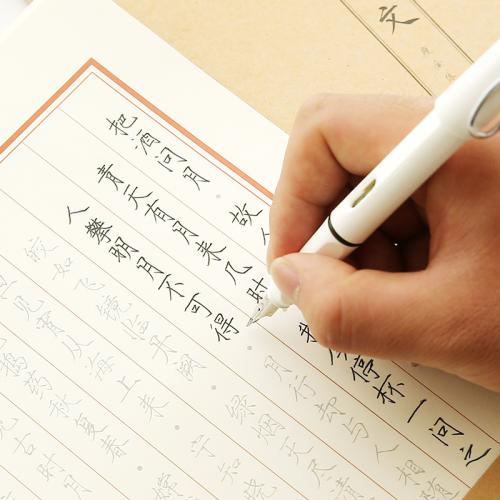 文
把酒问月 故
青天有月来几时 我今停杯一问之
人攀明月不可得 月行却与人相随
皎如飞镜临丹阙 绿烟灭尽
见宵从海上来 宁知晓
捣药秋复春 嫦
古时月